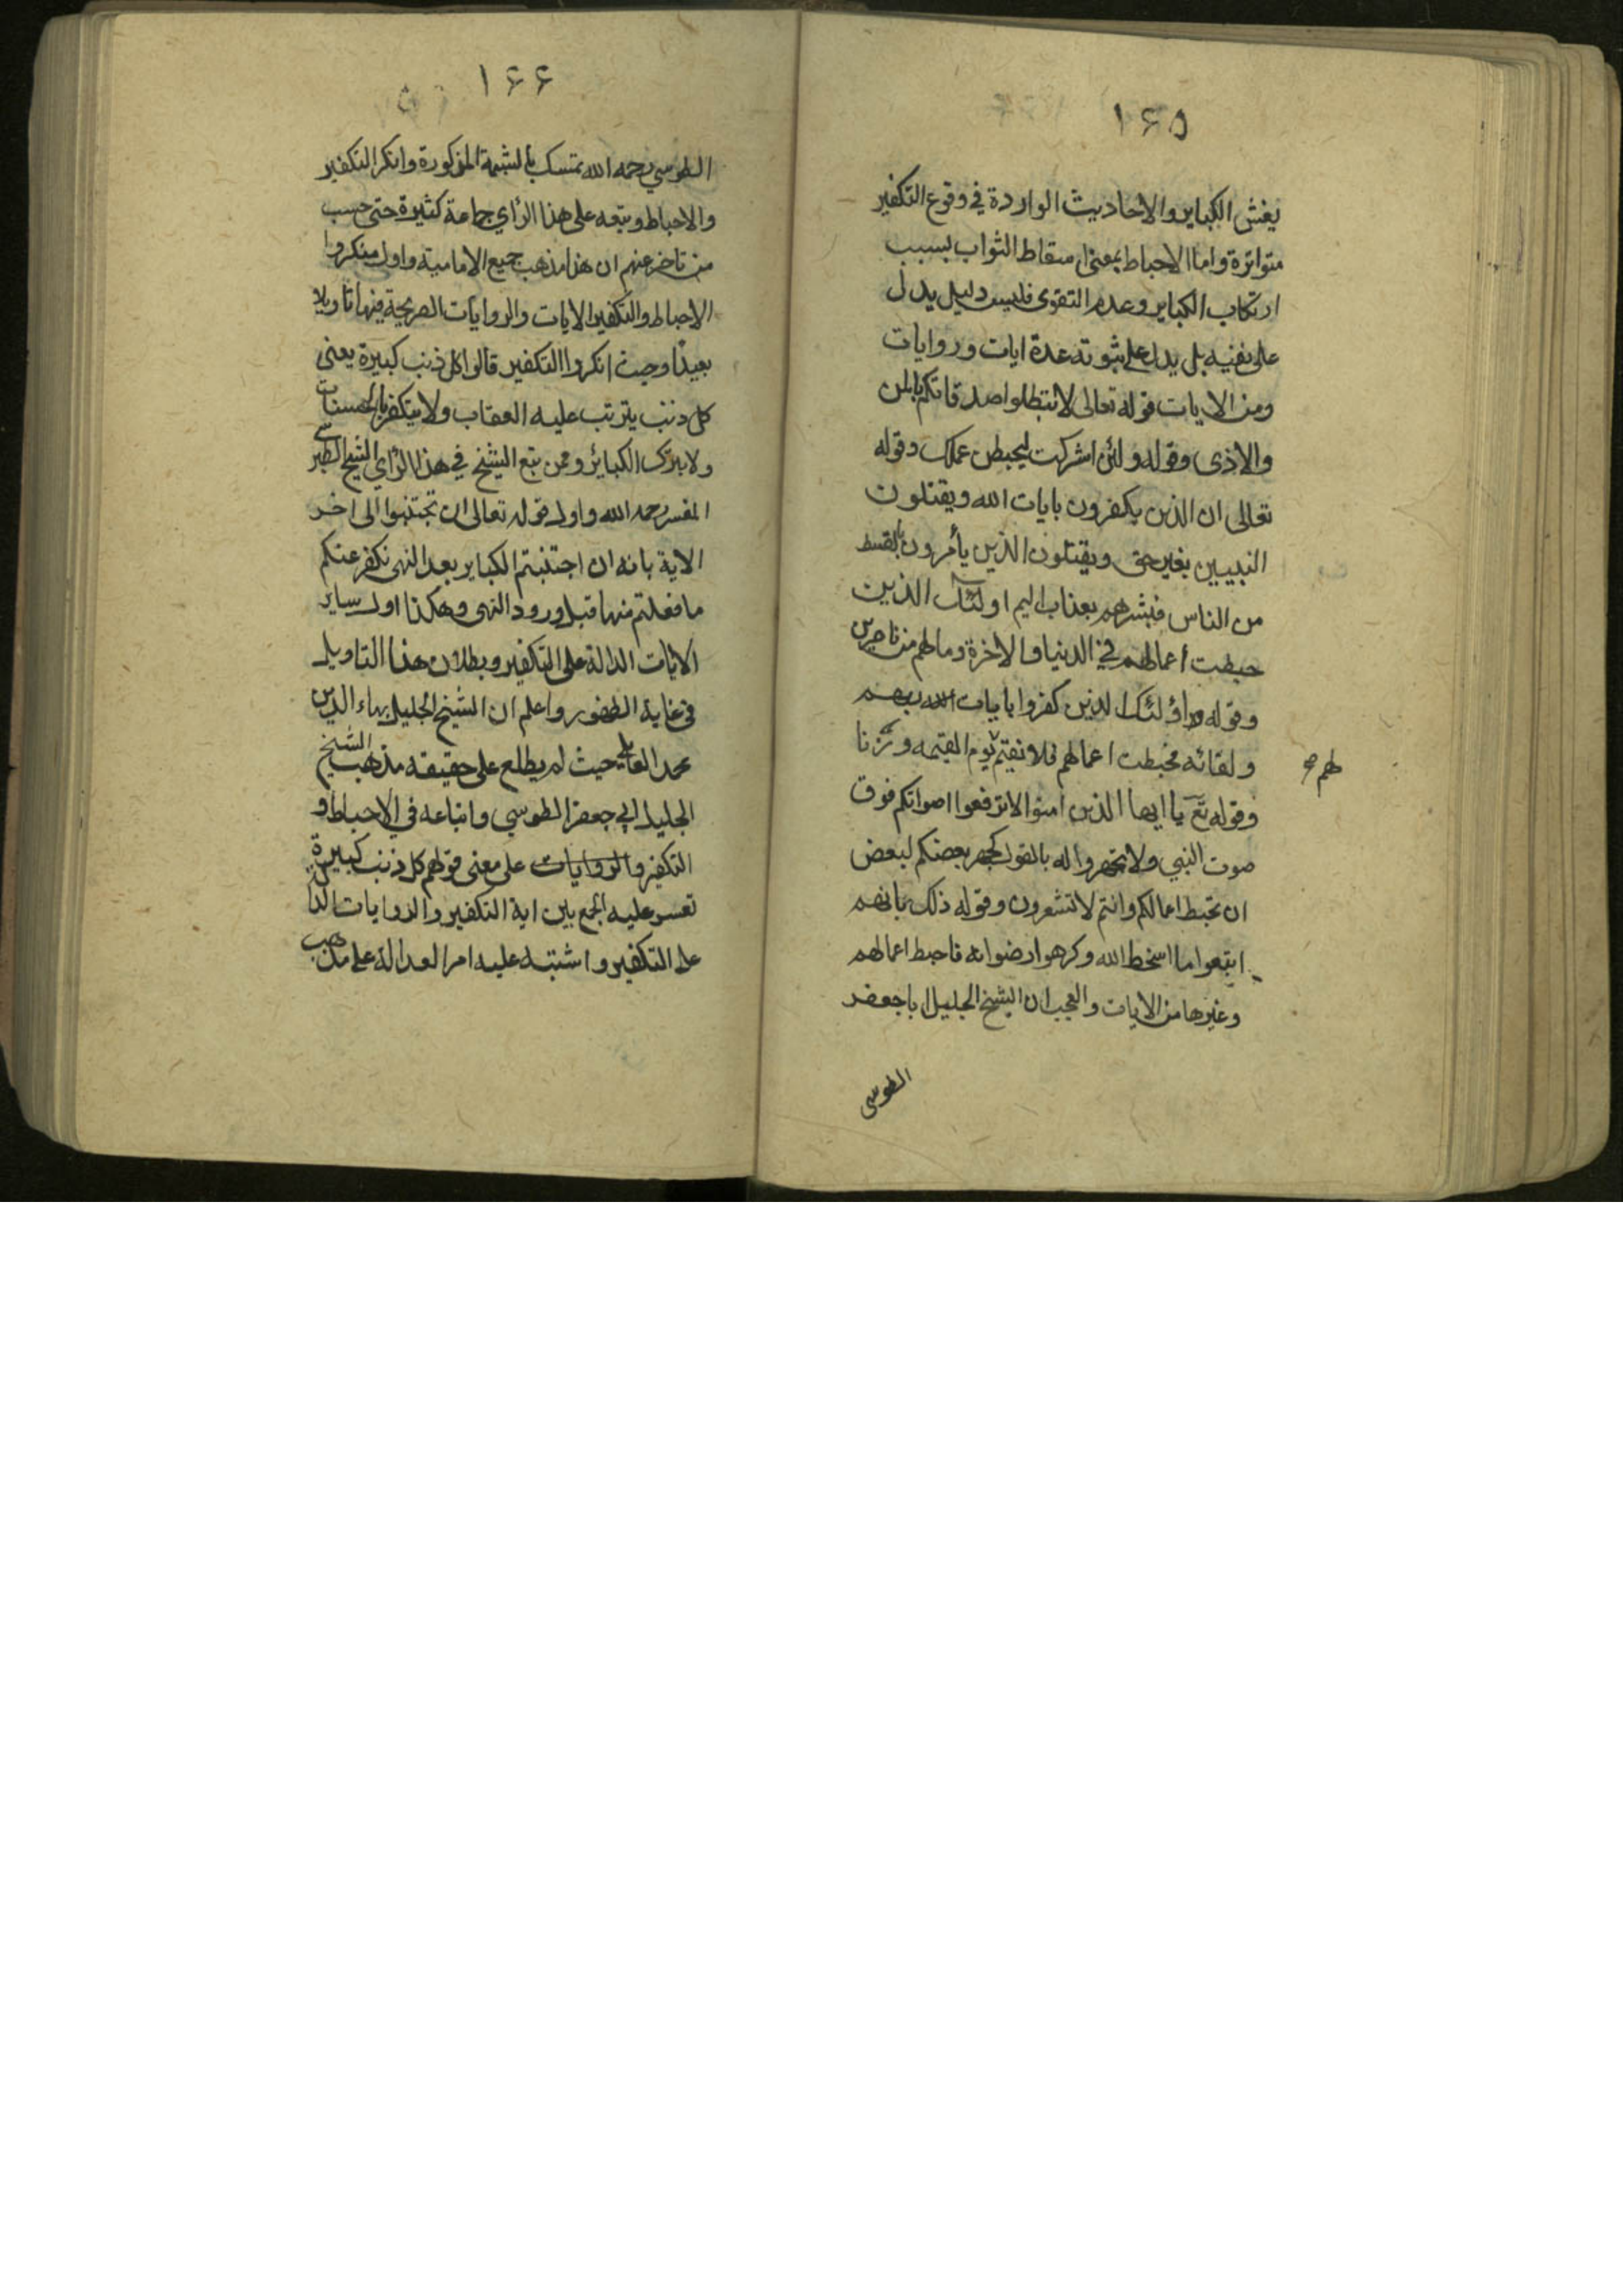 ١٦٥
يغش الكباير والاحاديث الواردة في وقوع التكفير
متواترة واما الاحباط بمعنى اسقاط الثواب بسبب
ارتكاب الكباير وعدم التقوى فليس دليل يدل
على نفيه بل يدل على ثبوته عدة ايات وروايات
ومن الايات قوله تعالى لا تبطلوا صدقاتكم بالمن
والاذى وقوله ولئن اشركت ليحبطن عملك وقوله
تعالى ان الذين يكفرون بايات الله ويقتلون
النبيين بغير حق ويقتلون الذين يأمرون بالقسط
من الناس فبشرهم بعذاب اليم اولئك الذين
حبطت أعمالهم في الدنيا والاخرة وما لهم من ناصرين
وقوله اولئك الذين كفروا بايات ربهم
ولقائه فحبطت اعمالهم فلا نقيم يوم القيمه وزنا
لهم صح
وقوله تع يا ايها الذين امنوا لا ترفعوا اصواتكم فوق
صوت النبي ولا تجهروا له بالقول كجهر بعضكم لبعض
ان تحبط اعمالكم وانتم لا تشعرون وقوله ذلك بانهم
اتبعوا ما اسخط الله وكرهوا رضوانه فاحبط اعمالهم
وغيرها من الايات والعجب ان الشيخ الجليل ابا جعفر
الطوسى
١٦٦
الطوسي رحمه الله تمسك بالشبهة المذكورة وانكر التكفير
والاحباط وتبعه على هذا الرأي جماعة كثيرة حتى حسب
من تاخر عنهم ان هذا مذهب جميع الامامية واول منكروا
الاحباط والتكفير الايات والروايات الصريحة فيها تاويلا
بعيدًا وحيث انكروا التكفير قالوا كل ذنب كبيرة يعنى
كل ذنب يترتب عليه العقاب ولا يتكفر بالحسنات
ولا بترك الكبائر وممن تبع الشيخ في هذا الرأي الشيخ الطبرسي
المفسر رحمه الله واول قوله تعالى ان تجتنبوا الى اخر
الاية بانه ان اجتنبتم الكباير بعد النهى نكفر عنكم
ما فعلتم منها قبل ورود النهى وهكذا اول ساير
الايات الدالة على التكفير وبطلان هذا التاويل
في غاية الظهور واعلم ان الشيخ الجليل بهاء الدين
محمد العاملي حيث لم يطلع على حقيقه مذهب الشيخ
الجليل ابي جعفر الطوسي واتباعه في الاحباط و
التكفير والروايات على معنى قولهم كل ذنب كبيرة
تعسر عليه الجمع بين اية التكفير والروايات الدالة
على التكفير واشتبه عليه امر العدالة على مذهب